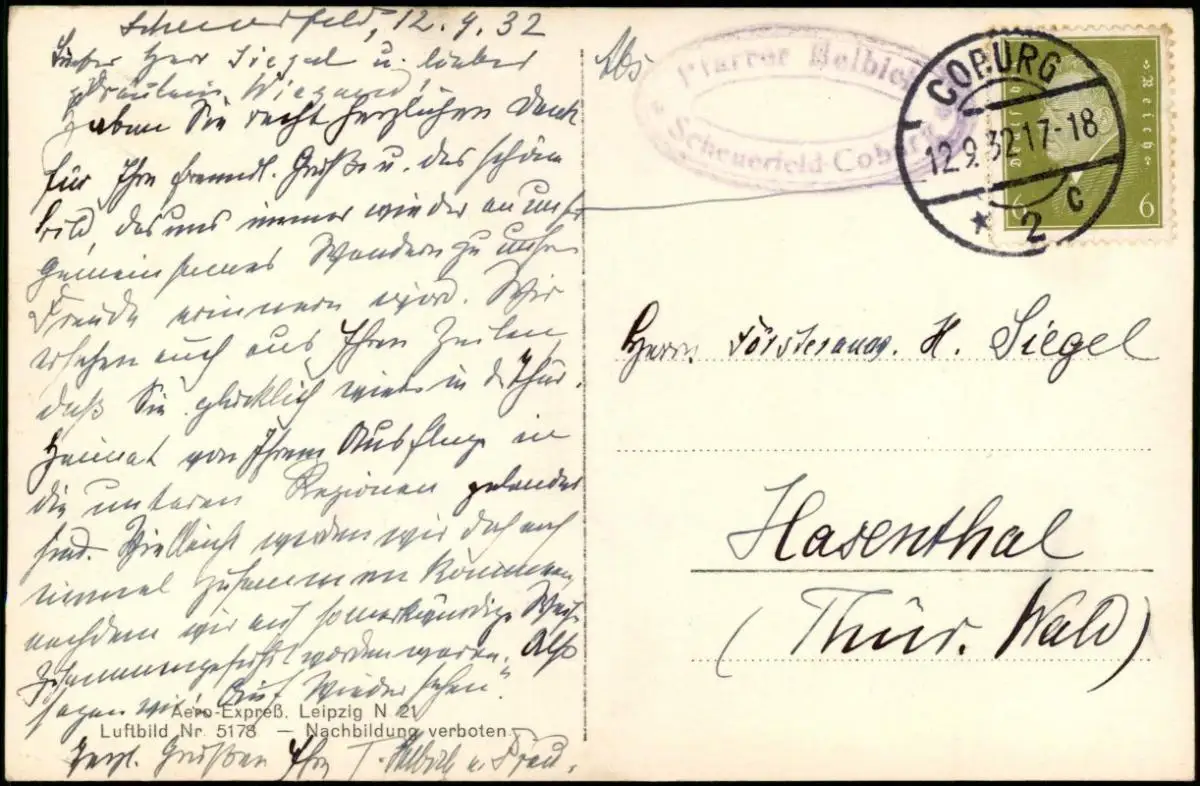 Scheuerfeld, 12.9.32
Lieber Herr Siegel u. liebes
Fräulein Wiegand!
Haben Sie recht herzlichen Dank
für Ihre freundl. Grüße u. das schöne
Bild, das uns immer wieder an unser
gemeinsames Wandern zu unsrer
Freude erinnern wird. Wir
ersehen auch aus Ihren Zeilen
daß Sie glücklich wieder in d. Thür.
Heimat von Ihrem Ausfluge in
die unteren Regionen gelandet
sind. Vielleicht werden wir doch noch
einmal zusammen kommen,
nachdem wir auf so merkwürdige Weise
zusammengeführt worden waren. Also
sagen wir: "Auf Wiedersehen"
Aero-Expreß, Leipzig N 21
Luftbild Nr. 5178 — Nachbildung verboten.
Herzl. Grüßen Ihr T. Helbich u. Frau.
Abs
Pfarrer Helbich
Scheuerfeld-Coburg
COBURG
12.9.32.17-18
* 2 c
6 6
Herrn Försteranw. H. Siegel
Hasenthal
(Thür. Wald)